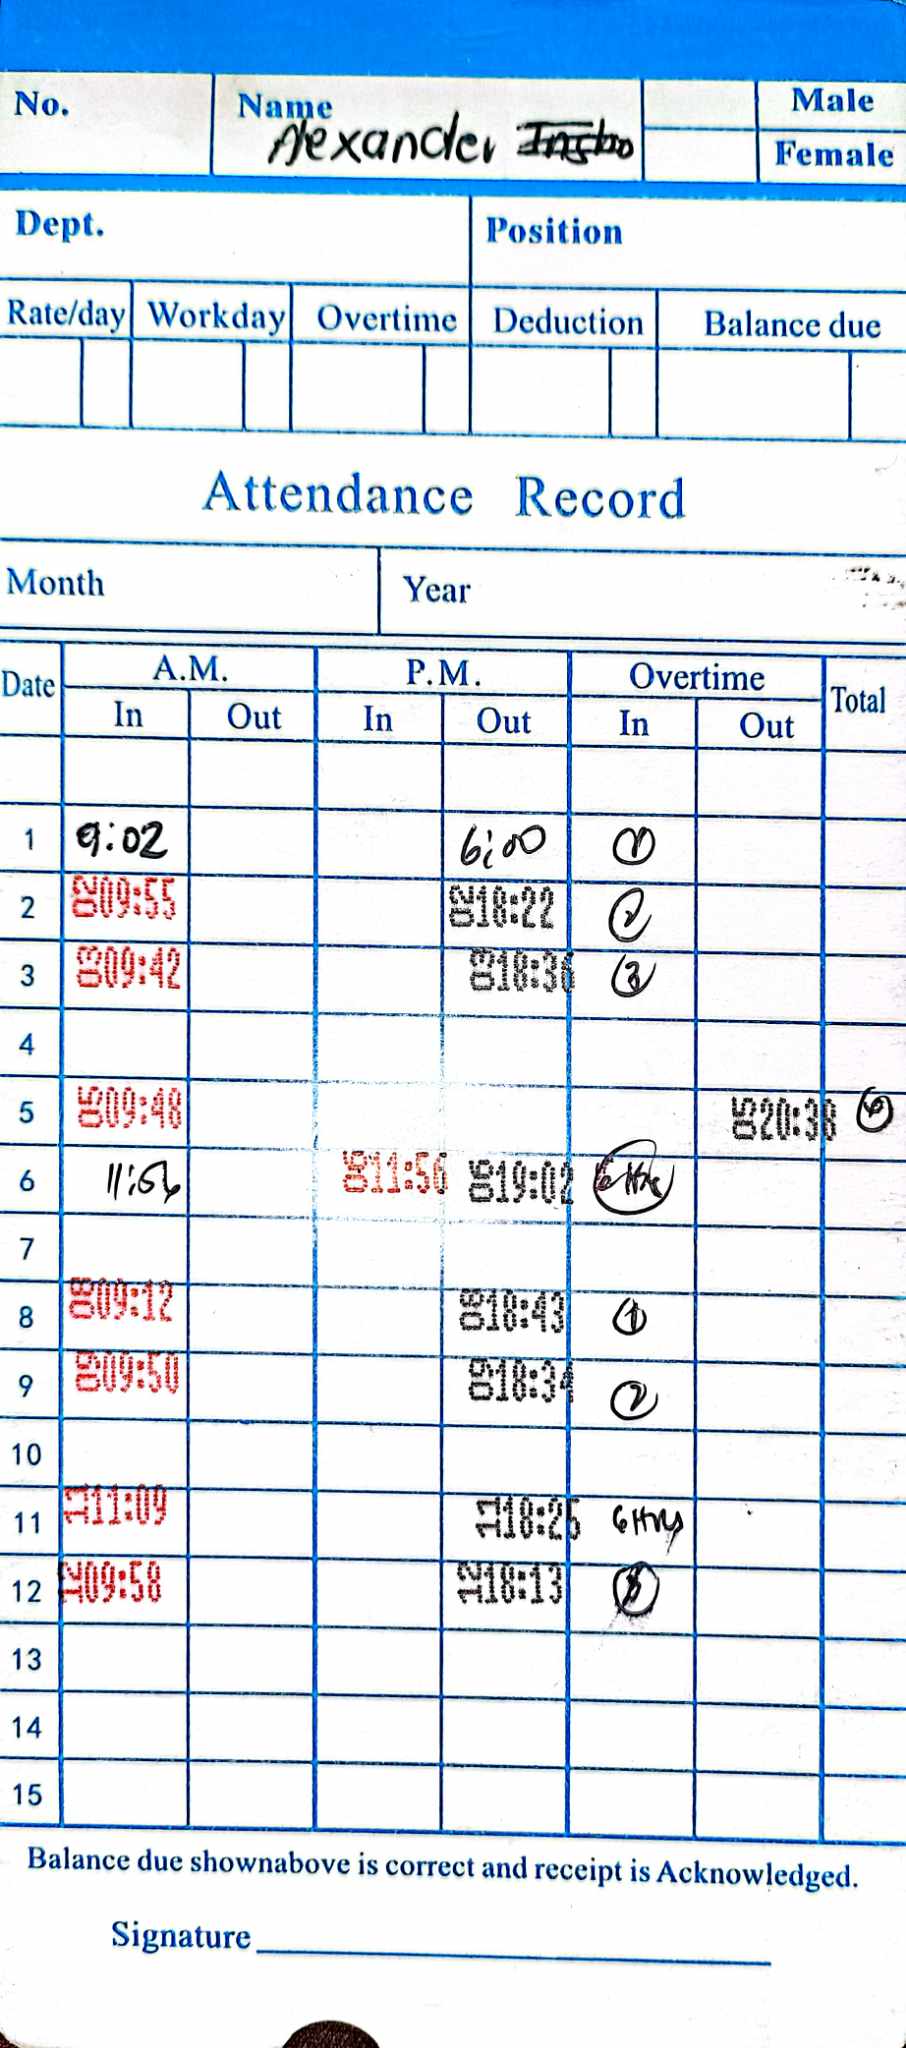 No. Name Male
Alexander Female
Dept. Position
Rate/day Workday Overtime Deduction Balance due
Attendance Record
Month Year
Date A.M. P.M. Overtime Total
In Out In Out In Out
1 9:02 6:00 1
2 02 09:55 02 18:22 2
3 03 09:42 03 18:36 3
4
5 05 09:48 05 20:38
6 11:56 06 11:56 06 19:02 6 Hrs
7
8 08 09:12 08 18:43 1
9 09 09:50 09 18:34 2
10
11 11 11:09 11 18:25 6 Hrs
12 12 09:58 12 18:13
13
14
15
Balance due shownabove is correct and receipt is Acknowledged.
Signature